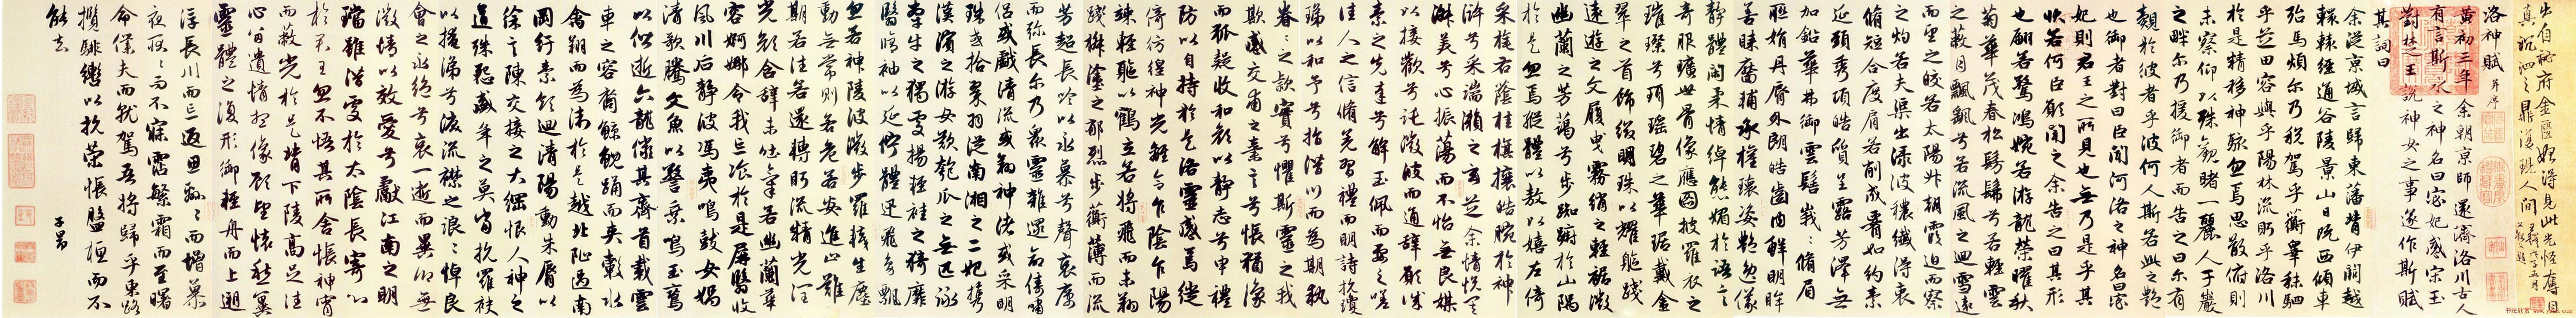 洛神賦 并序
黃初三年余朝京師還濟洛川古人
有言斯水之神名曰宓妃感宋玉
對楚王說神女之事遂作斯賦
其詞曰
余從京域言歸東藩背伊闕越
轘轅經通谷陵景山日既西傾車
殆馬煩尔乃稅駕乎蘅皋秣駟
乎芝田容與乎陽林流眄乎洛川
於是精移神駭忽焉思散俯則
未察仰以殊觀睹一麗人于巖
之畔尔乃援御者而告之曰尔有
覿於彼者乎彼何人斯若此之豔
也御者對曰臣聞河洛之神名曰宓
妃則君王之所見也無乃是乎其
狀若何臣願聞之余告之曰其形
也翩若驚鴻婉若游龍榮曜秋
菊華茂春松髣髴兮若輕雲
之蔽月飄颻兮若流風之迴雪遠
而望之皎若太陽升朝霞迫而察
之灼若夫渠出淥波穠纖得衷
脩短合度肩若削成腰如約素
延頸秀項皓質呈露芳澤無
加鉛華弗御雲髻峩峩脩眉
聯娟丹脣外朗皓齒內鮮明眸
善睞靨輔承權瓌姿豔逸儀
靜體閑柔情綽態媚於語言
奇服曠世骨像應圖披羅衣之
璀璨兮珥瑤碧之華琚戴金
翠之首飾綴明珠以耀軀踐
遠遊之文履曳霧綃之輕裾微
幽蘭之芳藹兮步踟躕於山隅
於是忽焉縱體以敖以嬉左倚
采旄右蔭桂旗攘皓腕於神
滸兮采湍瀨之玄芝余情悅其
淑美兮心振蕩而不怡無良媒
以接歡兮託微波而通辭願誠
素之先達兮解玉佩而要之嗟
佳人之信脩羌習禮而明詩抗瓊
珶以和予兮指潛川而為期執
眷眷之款實兮懼斯靈之我
欺感交甫之棄言兮悵猶豫
而狐疑收和顏以靜志兮申禮
防以自持於是洛靈感焉徙
倚彷徨神光離合乍陰乍陽
竦輕軀以鶴立若將飛而未翔
踐椒塗之郁烈步蘅薄而流
芳超長吟以永慕兮聲哀厲
而弥長尔乃眾靈雜遝命儔嘯
侶或戲清流或翔神渚或采明
珠或拾翠羽從南湘之二妃攜
漢濱之游女歎匏瓜之無匹詠
牽牛之獨處揚輕袿之猗靡
翳脩袖以延佇體迅飛鳧飄
忽若神陵波微步羅襪生塵
動無常則若危若安進止難
期若往若還轉眄流精光潤
玉顏含辭未吐氣若幽蘭華
容婀娜令我忘餐於是屏翳收
風川后靜波馮夷鳴鼓女媧
清歌騰文魚以警乘鳴玉鸞
以偕逝六龍儼其齊首載雲
車之容裔鯨鯢踊而夾轂水
禽翔而為衛於是越北沚過南
岡紆素領迴清陽動朱脣以
徐言陳交接之大綱恨人神之
道殊怨盛年之莫當抗羅袂
以掩涕兮淚流襟之浪浪悼良
會之永絕兮哀一逝而異鄉無
微情以效愛兮獻江南之明
璫雖潛處於太陰長寄心
於君王忽不悟其所舍悵神宵
而蔽光於是背下陵高足往
心留遺情想像顧望懷愁冀
靈體之復形御輕舟而上遡
浮長川而忘返思緜緜而增慕
夜耿耿而不寐霑繁霜而至曙
命僕夫而就駕吾將歸乎東路
攬騑轡以抗策悵盤桓而不
能去
子昂